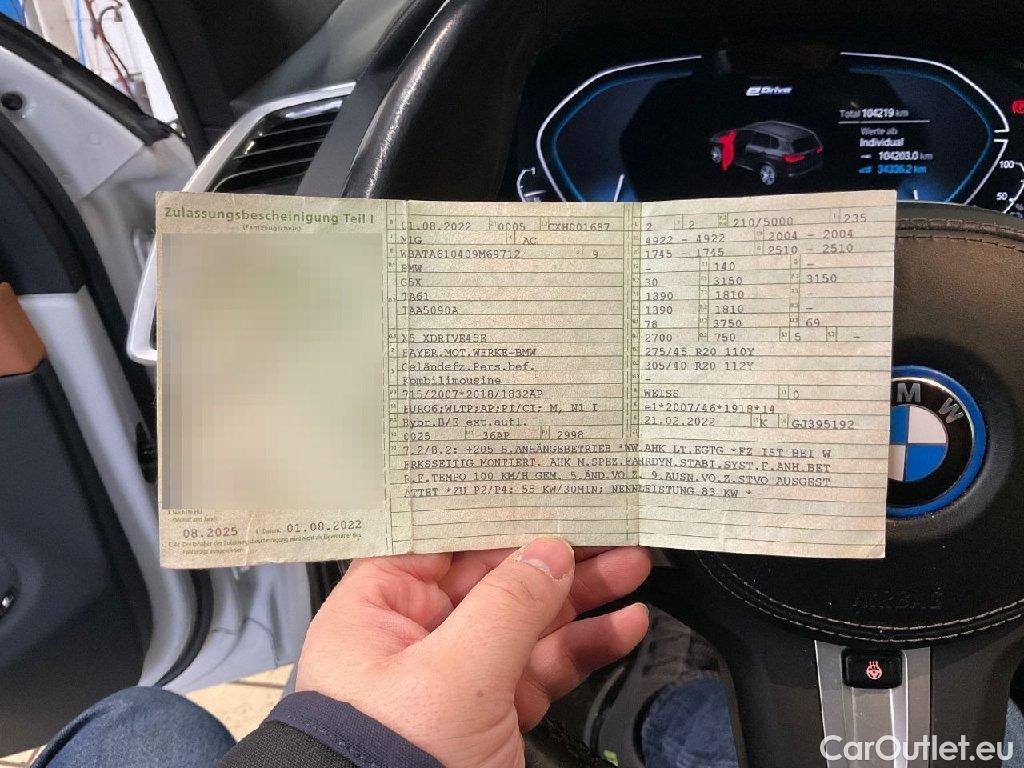 eDrive
Total 104219 km
Werte ab
Individual
104203.0 km
34326.2 km
100
50
Zulassungsbescheinigung Teil I
(Fahrzeugschein)
01.08.2022 0005 CXH001687
M1G AC
WBATA610409M69712 9
BMW
G5X
TA61
TAA5090A
X5 XDRIVE45E
BAYER.MOT.WERKE-BMW
Geländefz.Pers.bef.
Kombilimousine
715/2007*2018/1832AP
EURO6;WLTP;AP;PI/CI; M, N1 I
Hybr.B/E ext.aufl.
0025 36AP 2998
2 2 210/5000 235
4922 - 4922 2004 - 2004
1745 - 1745 2510 - 2510
- 140 -
30 3150 3150
1390 1810 -
1390 1810 -
78 3750 69
2700 750 5 -
275/45 R20 110Y
305/40 R20 112Y
-
WEISS 0
e1*2007/46*1918*14
21.02.2022 K GJ395192
7.2/8.2: +205 B.ANHÄNGEBETRIEB *WW.AHK LT.EGTG *FZ IST BEI W
ERKSSEITIG MONTIERT. AHK M.SPEZ.FAHRDYN.STABI.SYST.F.ANH.BET
R.F.TEMPO 100 KM/H GEM. 5.ÄND.VO Z. 9.AUSN.VO.Z.STVO AUSGEST
ATTET *ZU P2/P4: 55 KW/30MIN; NENNLEISTUNG 83 KW *
08.2025 01.08.2022
BMW
AIRBAG
CarOutlet.eu